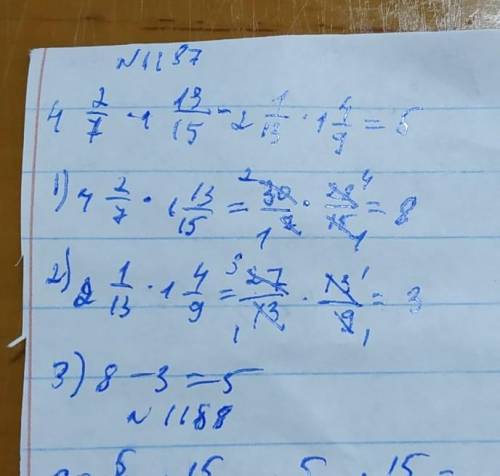 N1187
4 2/7 · 1 13/15 - 2 1/13 · 1 4/9 = 5
1) 4 2/7 · 1 13/15 = 30/7 · 28/15 = 8
2) 2 1/13 · 1 4/9 = 27/13 · 13/9 = 3
3) 8 - 3 = 5
N1188